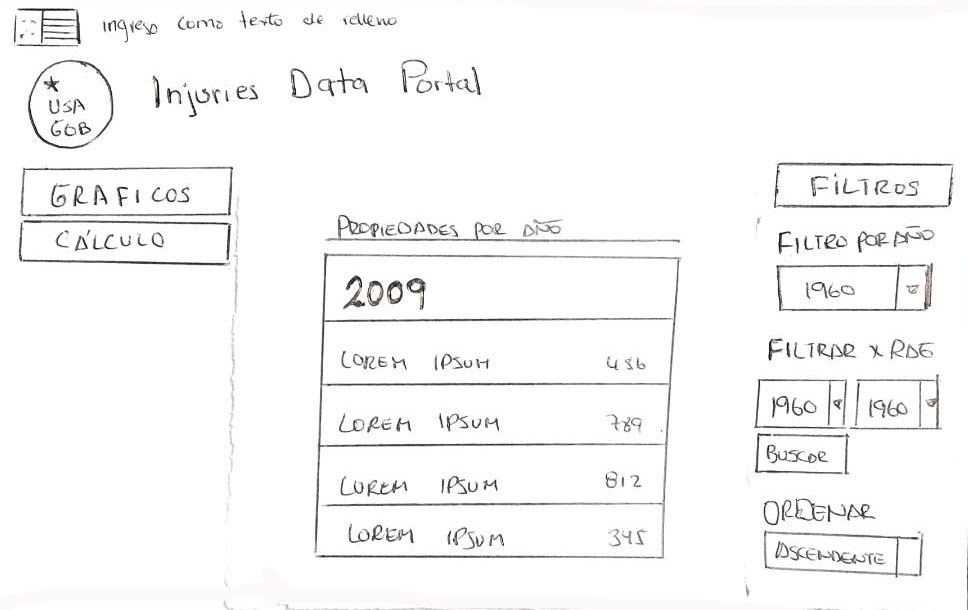 ingreso como texto de relleno
USA
GOB
Injuries Data Portal
GRAFICOS
CÁLCULO
PROPIEDADES POR AÑO
2009
LOREM IPSUM 456
LOREM IPSUM 789
LOREM IPSUM 812
LOREM IPSUM 345
FILTROS
FILTRO POR AÑO
1960
FILTRAR X RAE
1960 1960
BUSCAR
ORDENAR
ASCENDENTE